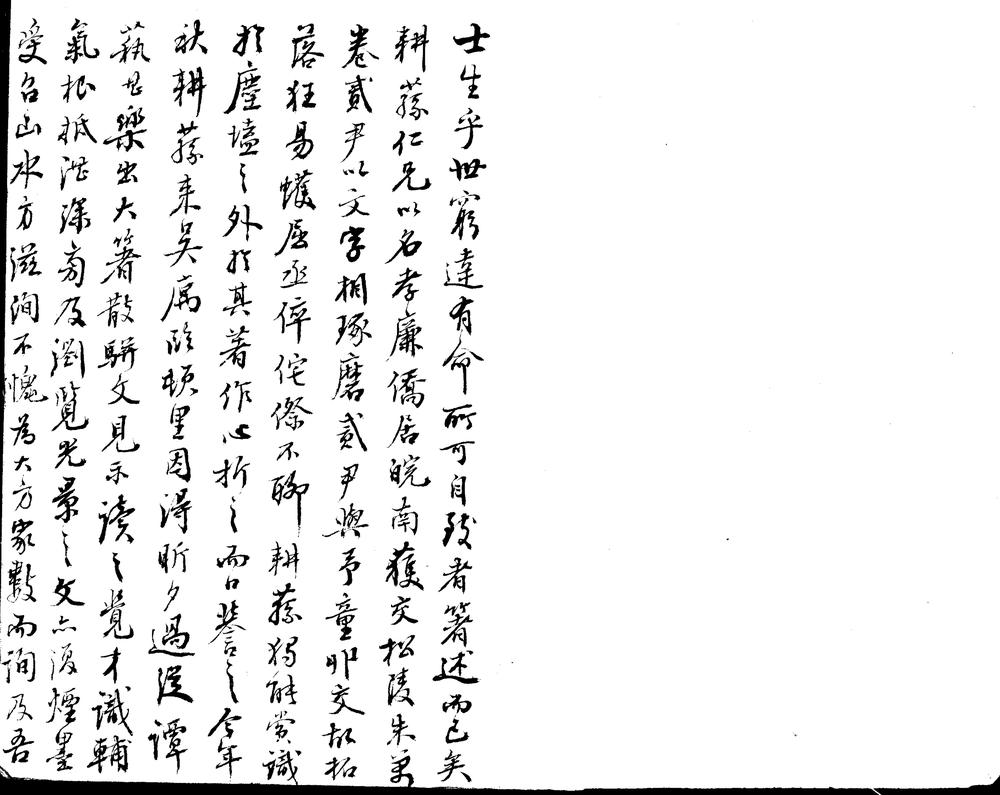 士生乎世窮達有命所可自致者箸述而已矣
耕蓀仁兄以名孝廉僑居皖南獲交松陵朱君
卷貳尹以文字相琢磨貳尹與予童丱交故拓
落狂易蠖屈丞倅侘傺不聊耕蓀獨能賞識
於塵壒之外於其著作心折之而口譽之今年
秋耕蓀來吳寓臨頓里因得昕夕過從譚
蓺甚樂出大箸散駢文見示讀之覺才識輔
氣根柢湛深旁及瀏覽光景之文亦復煙墨
受召山水方滋洵不愧為大方家數而詢及吾